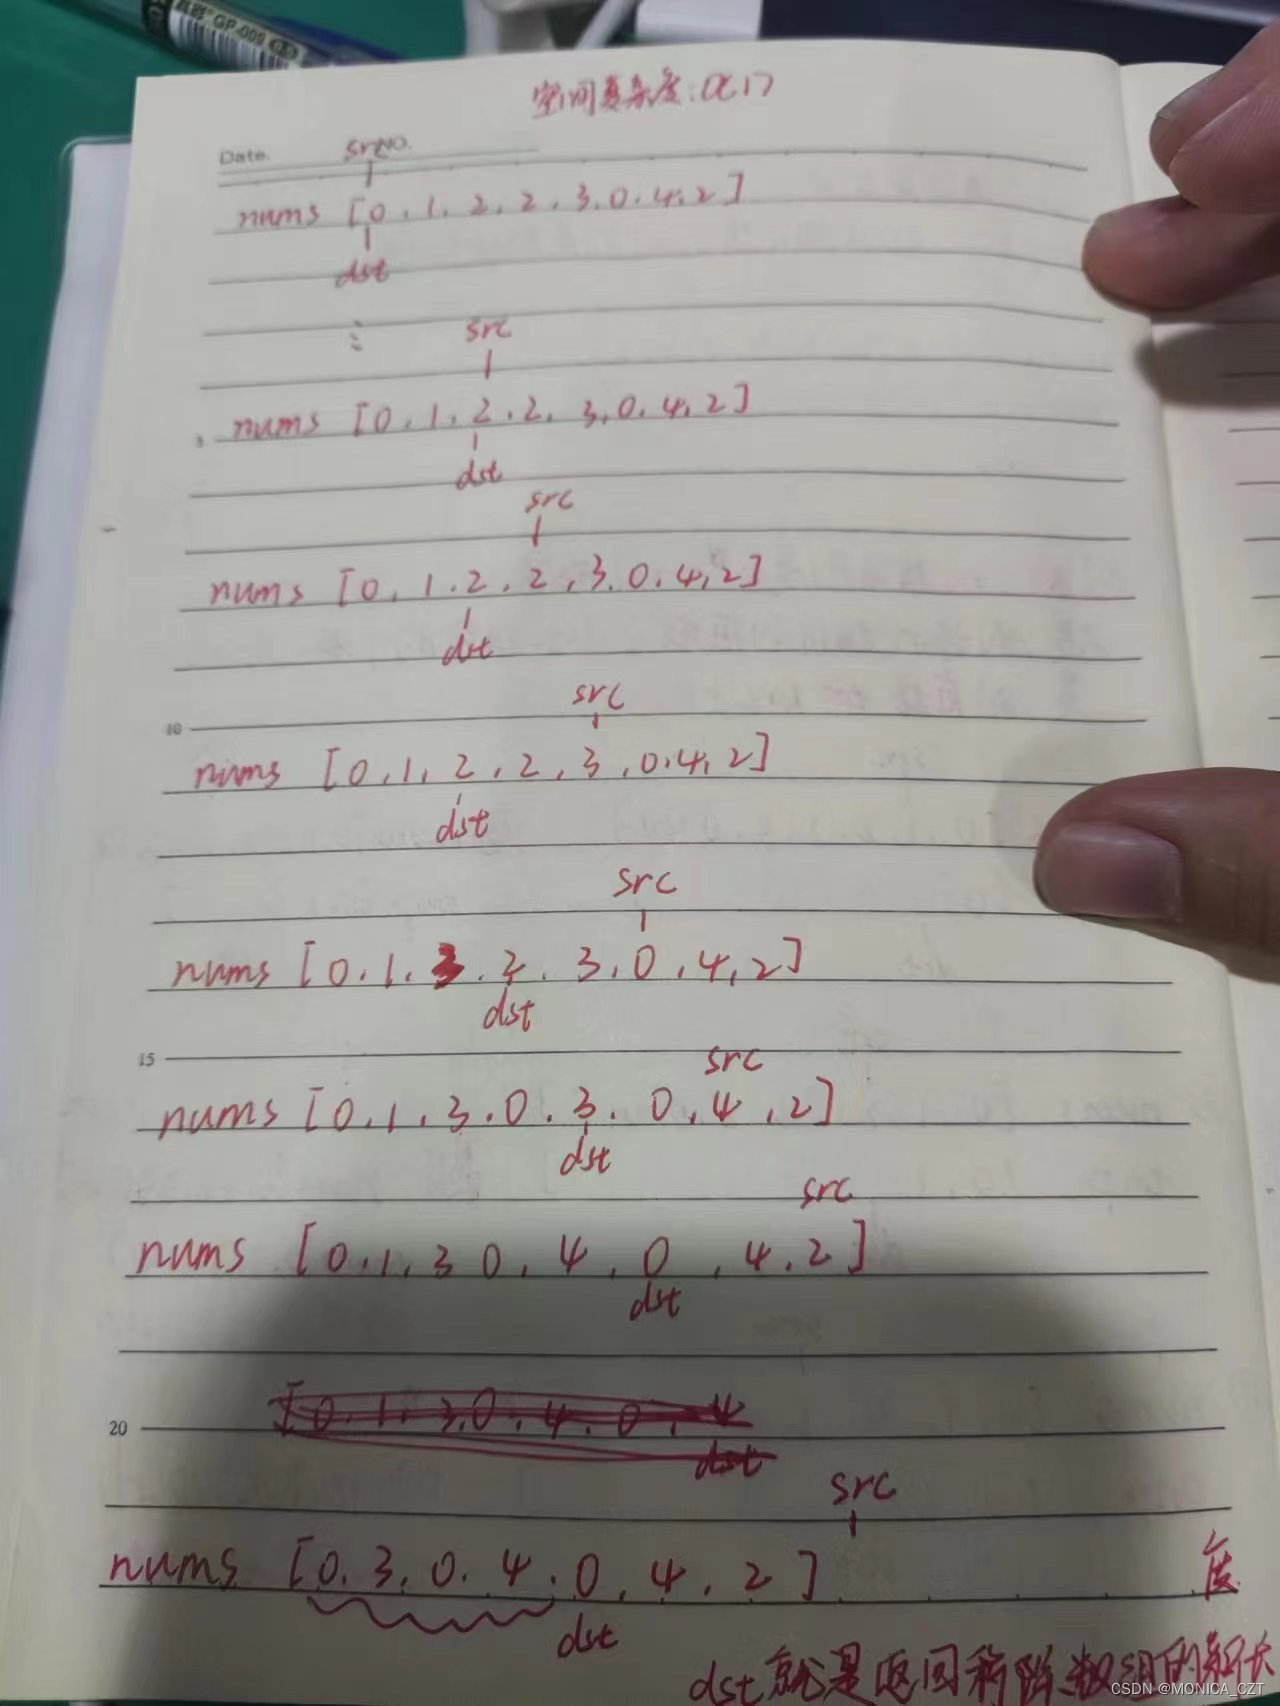 GP-009
空间复杂度:O(1)
Date. NO.
src
nums [0, 1, 2, 2, 3, 0, 4, 2]
dst
src
nums [0, 1, 2, 2, 3, 0, 4, 2]
dst
src
nums [0, 1, 2, 2, 3, 0, 4, 2]
dst
src
10
nums [0, 1, 2, 2, 3, 0, 4, 2]
dst
src
nums [0, 1, 3, 2, 3, 0, 4, 2]
dst
15
src
nums [0, 1, 3, 0, 3, 0, 4, 2]
dst
src
nums [0, 1, 3 0, 4, 0, 4, 2]
dst
20
[0, 1, 3, 0, 4, 0,
dst
src
nums [0, 3, 0, 4, 0, 4, 2]
度
dst
dst就是返回移除数组的新长
CSDN @MONICA_CZT